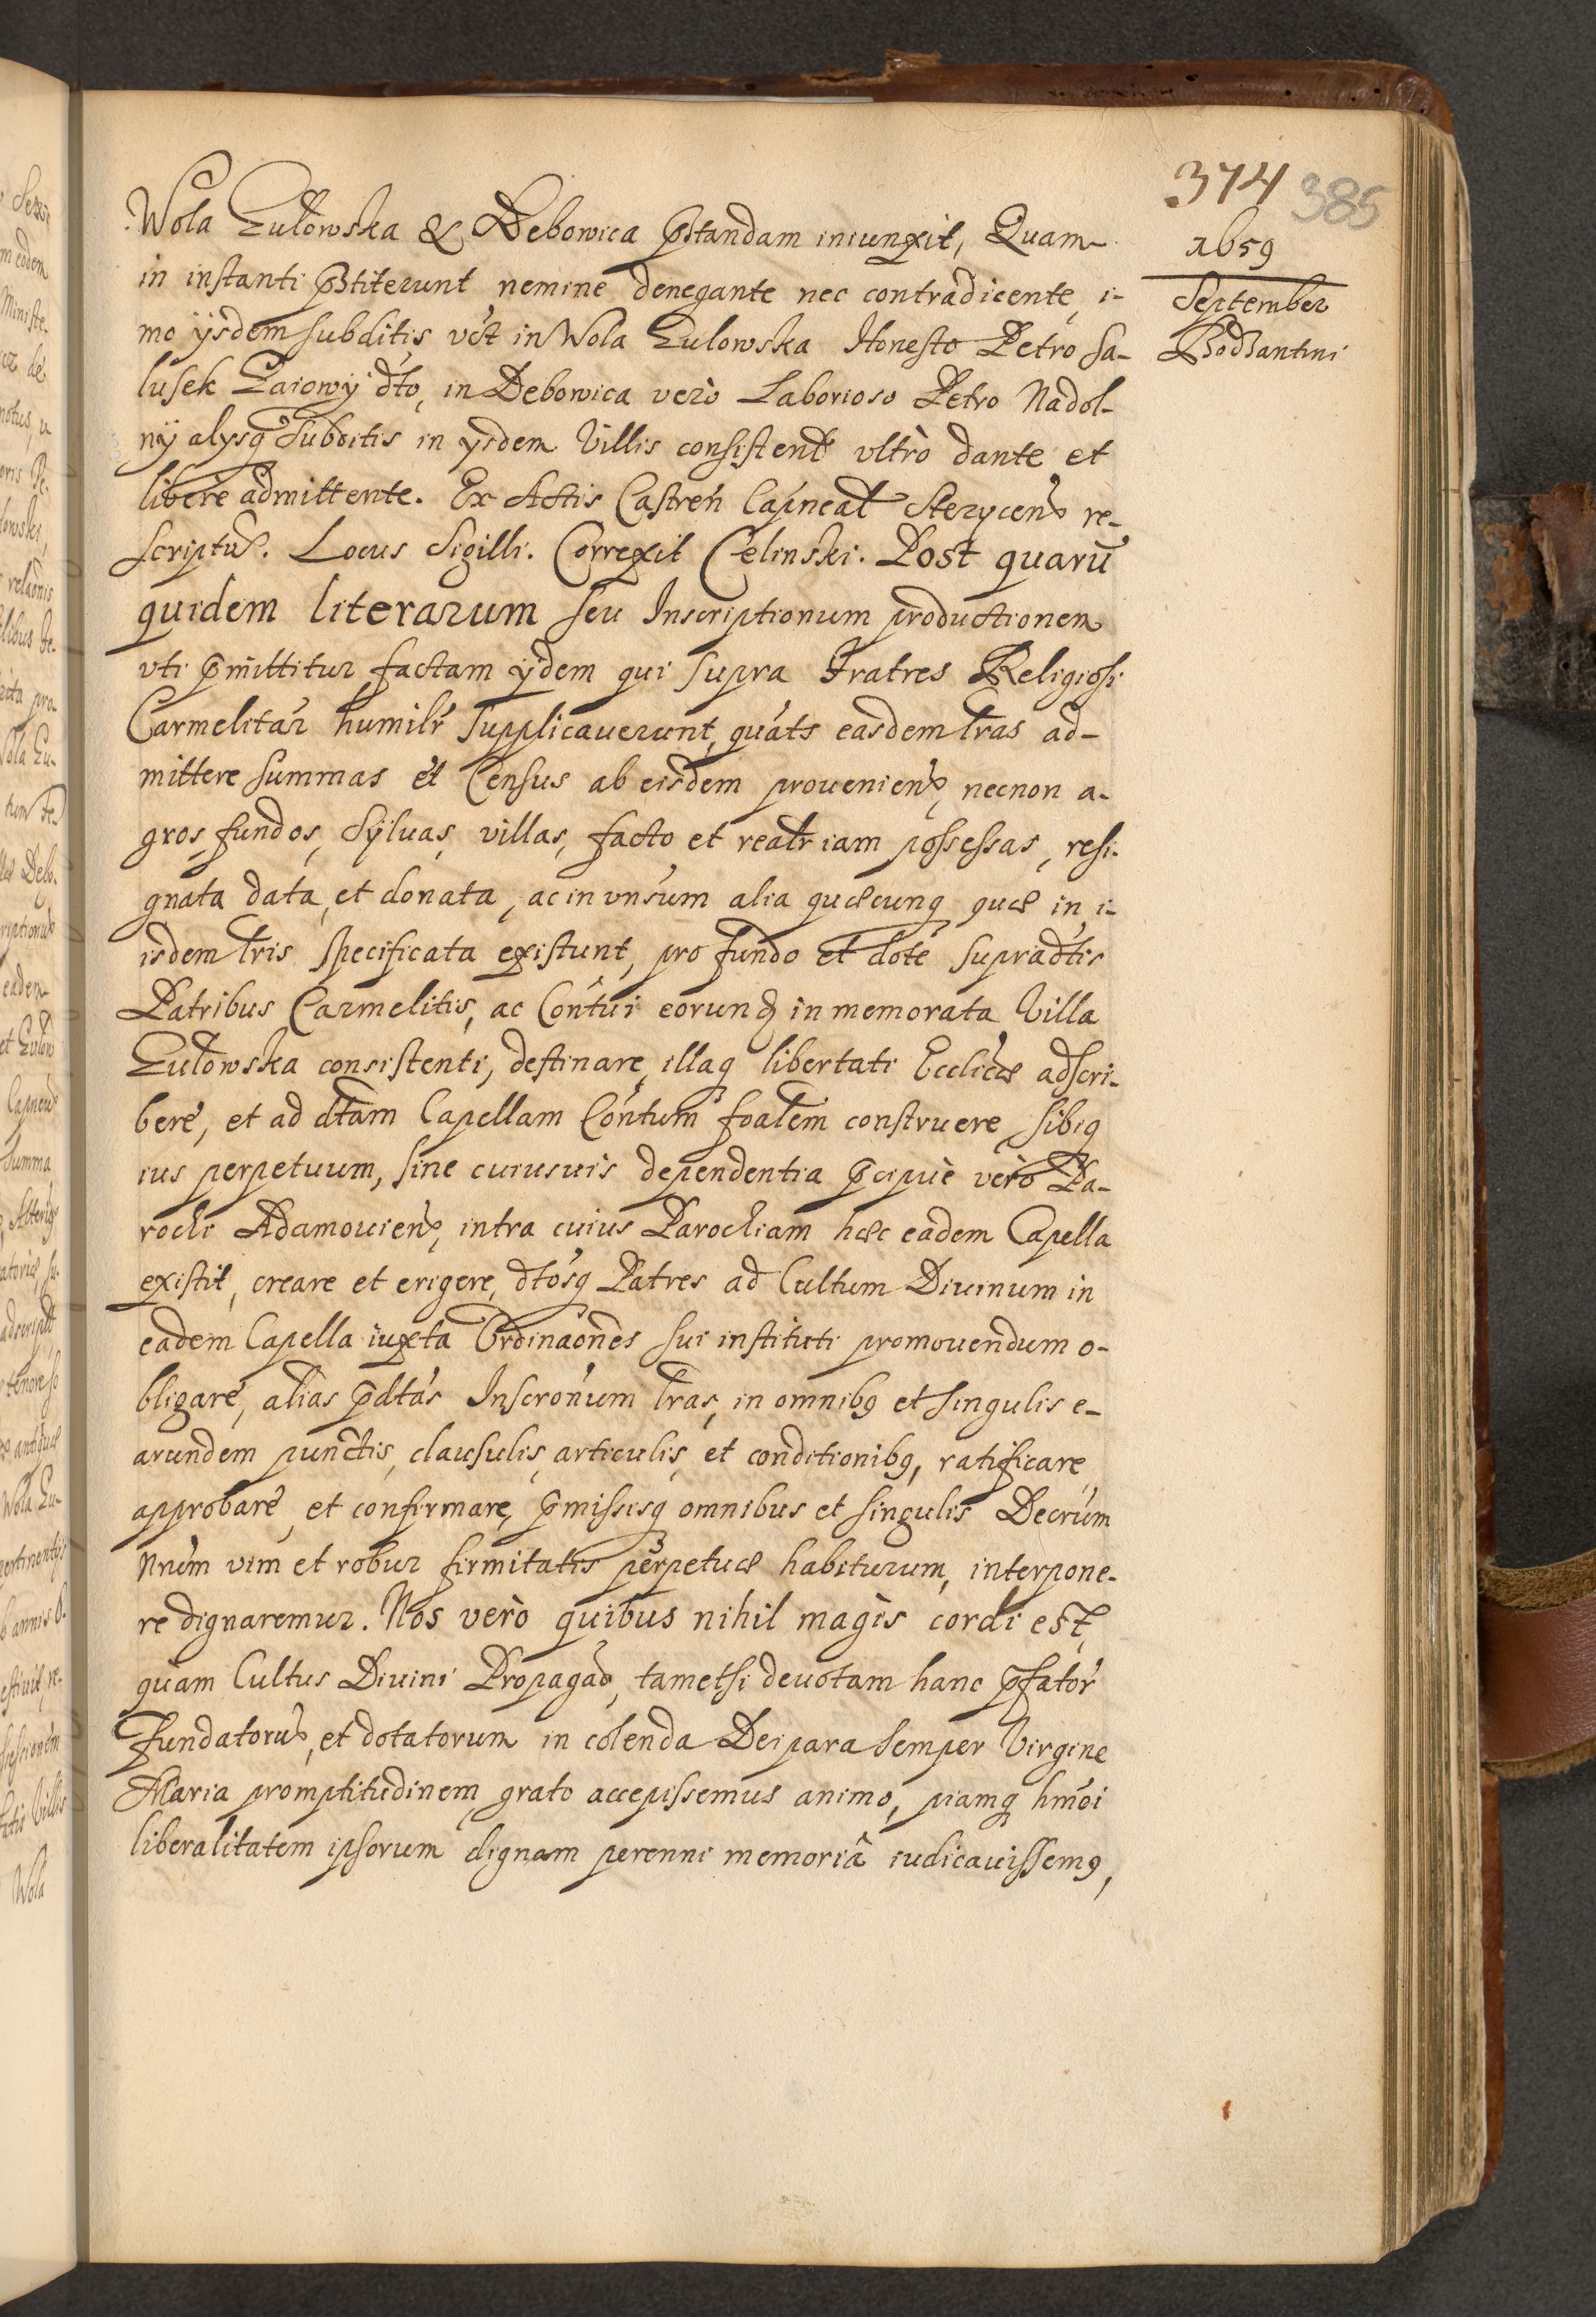 374 385
1659
September
Bodzantini
Wola Gułowska & Debowica pstandam iniunxit, Quam
in instanti pstiterunt nemine denegante nec contradicente, i-
mo ysdem subditis vct in Wola Gulowska Honesto Petro Sa-
lusek Gaiowy dto, in Debowica verò Laborioso Petro Nadol-
ny alysq subditis in ysdem Villis consistent vltrò dante et
libere admittente. Ex Actis Castren Capneal Sterycen re-
scriptu. Locus Sigilli. Correxit Celinski. Post quarū
quidem literarum seu Inscriptionum productionem
vti pmittitur factam ydem qui supra Fratres Religiosi
Carmelitar humilr supplicauerunt, quats easdem lras ad-
mittere summas et Census ab eisdem prouenien, necnon a-
gros, fundos, Syluas, villas, facto et realr iam possessas, resi-
gnata data, et donata, ac in vnsum alia quæcunq quæ in i-
isdem lris specificata existunt, pro fundo et dote supradtis
Patribus Carmelitis, ac Contui eorund in memorata Villa
Gułowska consistenti, destinare, illaq libertati Eccliæ adscri-
bere, et ad dtam Capellam Contum foalem construere, sibiq
ius perpetuum, sine cuiusuis dependentia pcipuè verò Pa-
rochi Adamouien, intra cuius Parochiam hæc eadem Capella
existit, creare et erigere, dtosq Patres ad Cultum Diuinum in
eadem Capella iuxta Ordinaones sui instituti promouendum o-
bligare, alias pdtas Inscronum lras, in omnibq et singulis e-
arundem punctis, clausulis, articulis, et conditionibq, ratificare
approbare, et confirmare, pmissisq omnibus et singulis Decrum
nrum vim et robur firmitatis perpetuæ habiturum, interpone-
re dignaremur. Nos verò quibus nihil magis cordi est,
quam Cultus Diuini Propagao, tametsi deuotam hanc pfator
Fundatoru, et dotatorum in colenda Deipara semper Virgine
Maria promptitudinem grato accepissemus animo, piamq hmoi
liberalitatem ipsorum dignam perenni memoriâ iudicauissemq,